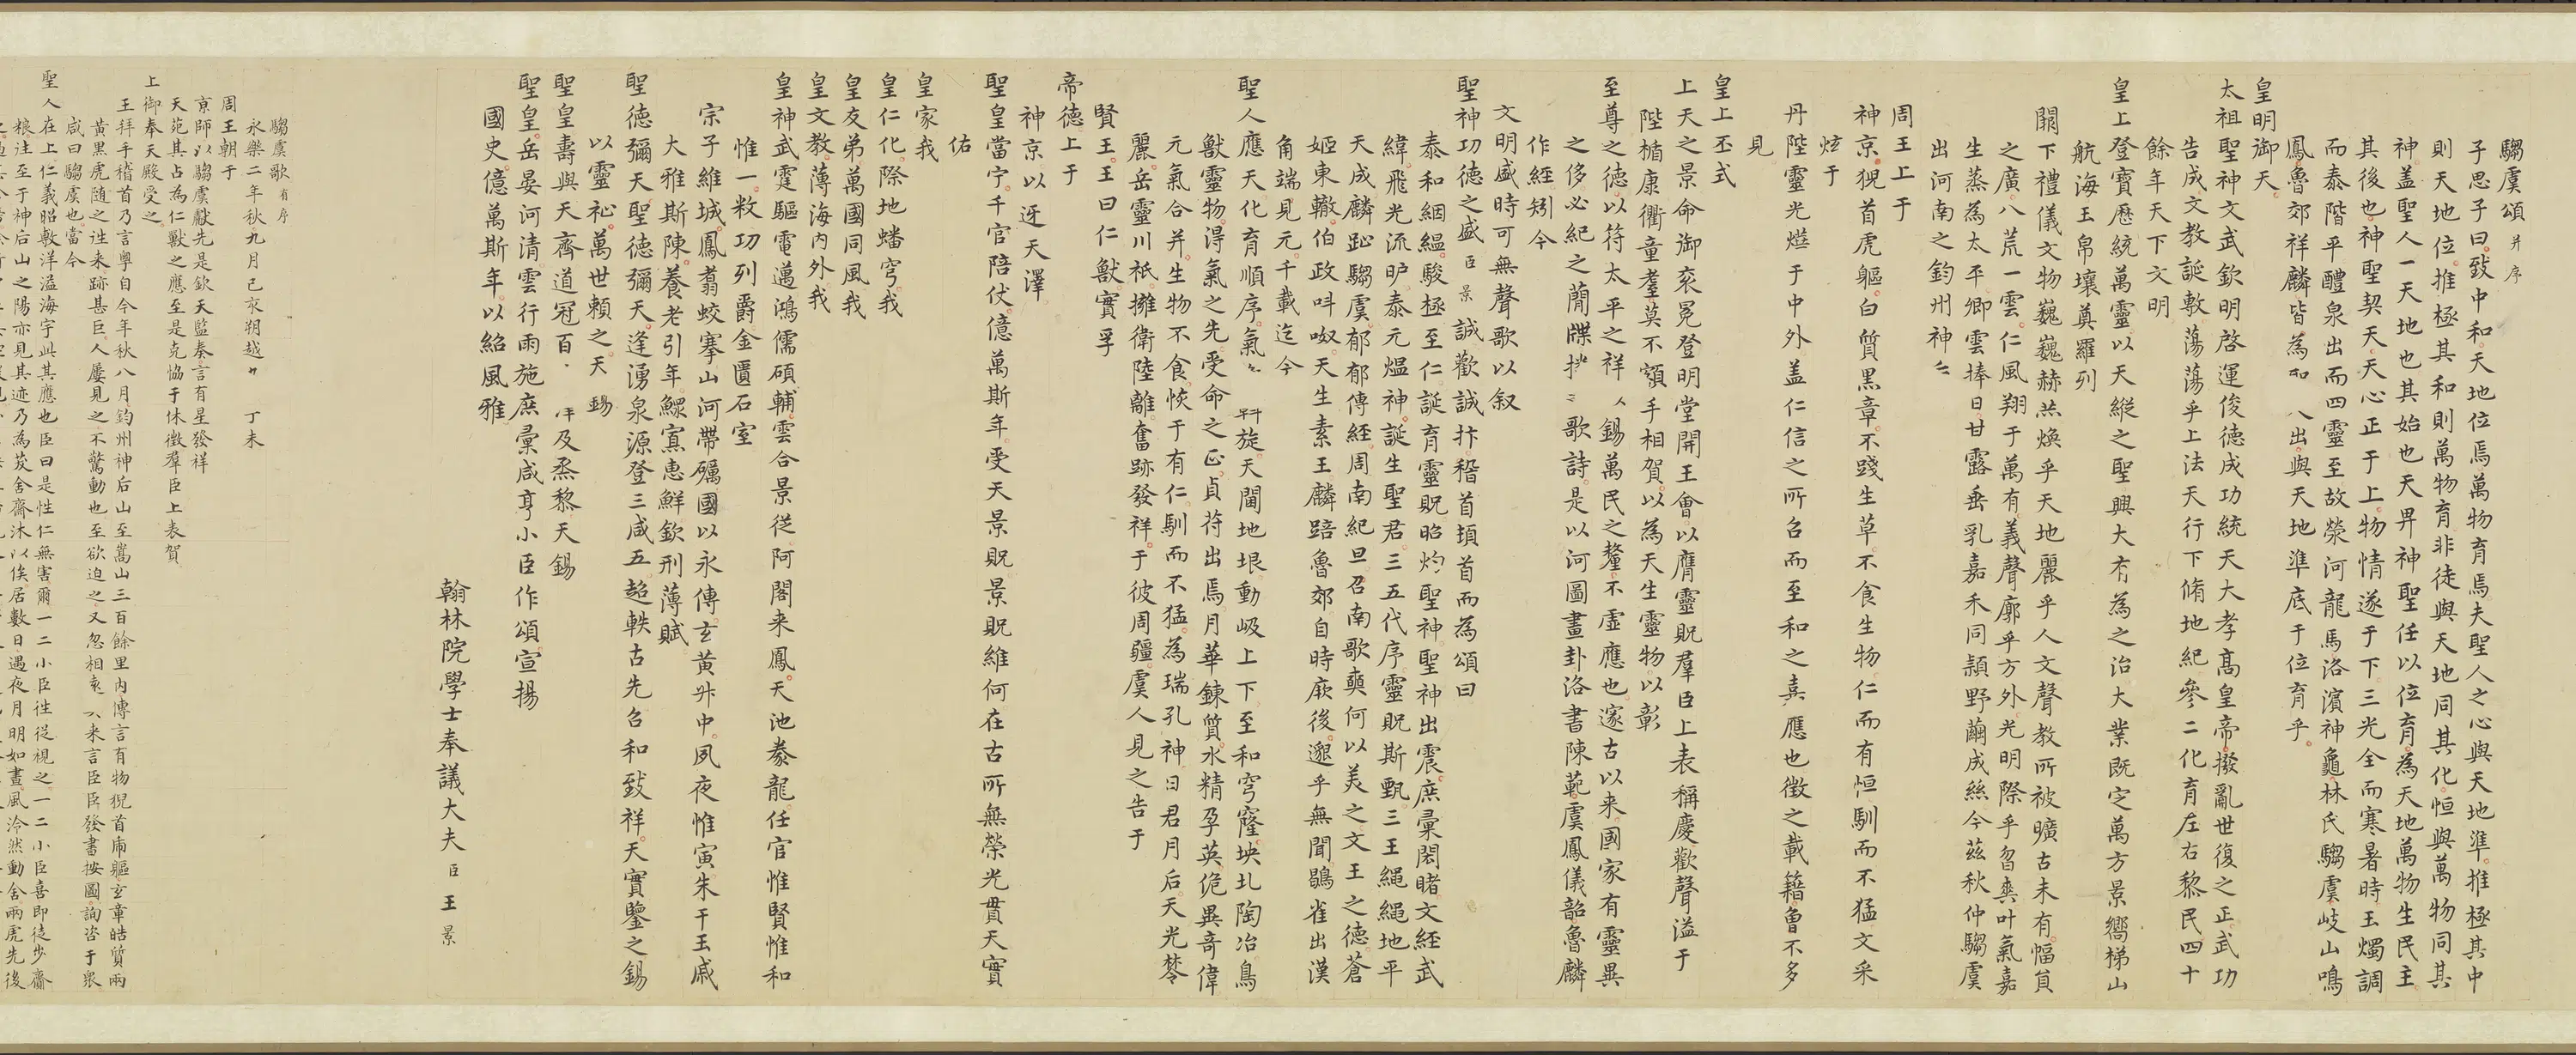 騶虞頌并序
子思子曰致中和天地位焉萬物育焉夫聖人之心與天地準推極其中
則天地位推極其和則萬物育非徒與天地同其化恒與萬物同其
神盖聖人一天地也其始也天畀神聖任以位育為天地萬物生民主
其後也神聖契天天心正于上物情遂于下三光全而寒暑時玉燭調
而泰階平醴泉出而四靈至故滎河龍馬洛濱神龜林氏騶虞岐山鳴
鳳魯郊祥麟皆為和 出與天地準底于位育乎
皇明御天
太祖聖神文武欽明啓運俊德成功統天大孝高皇帝撥亂世復之正武功
告成文教誕敷蕩蕩乎上法天行下脩地紀參二化育左右黎民四十
餘年天下文明
皇上登寶曆統萬靈以天縱之聖興大有為之治大業既定萬方景嚮梯山
航海玉帛壤奠羅列
闕下禮儀文物巍巍赫然煥乎天地麗乎人文聲教所被曠古未有幅員
之廣八荒一雲仁風翔于萬有義聲廓乎方外光明際乎曶爽叶氣嘉
生蒸為太平卿雲捧日甘露垂乳嘉禾同穎野繭成絲今茲秋仲騶虞
出河南之鈞州神
周王上于
神京猊首虎軀白質黑章不踐生草不食生物仁而有恒馴而不猛文采
炫于
丹陛靈光爗于中外盖仁信之所召而至和之嘉應也徵之載籍曾不多
見
皇上丕式
上天之景命御衮冕登明堂開王會以膺靈貺羣臣上表稱慶歡聲溢于
陛楯康衢童耋莫不額手相賀以為天生靈物以彰
至尊之德以符太平之祥 錫萬民之釐不虛應也邃古以来國家有靈異
之侈必紀之蕑牒 歌詩是以河圖畫卦洛書陳範虞鳳儀韶魯麟
作經矧今
文明盛時可無聲歌以叙
聖神功德之盛臣景誠歡誠抃稽首頓首而為頌曰
泰和絪縕駿極至仁誕育靈貺昭灼聖神聖神出震庶彙閎睹文經武
緯飛光流旷泰元熅神誕生聖君三五代序靈貺斯甄三王繩繩地平
天成麟趾騶虞郁郁傳經周南紀旦召南歌奭何以美之文王之德蒼
姬東轍伯政呌呶天生素王麟踣魯郊自時厥後邈乎無聞鶡雀出漢
角端見元千載迄今
聖人應天化育順序氣 斡旋天閫地垠動岋上下至和穹窿坱圠陶冶鳥
獸靈物得氣之先受命之正貞符出焉月華鍊質水精孕英佹異奇偉
元氣合并生物不食恢于有仁馴而不猛為瑞孔神日君月后天光棽
麗岳靈川祇擁衛陸離奮跡發祥于彼周疆虞人見之告于
賢王王曰仁獸實孚
帝德上于
神京以迓天澤
聖皇當宁千官陪仗億萬斯年受天景貺景貺維何在古所無榮光貫天實
佑
皇家我
皇仁化際地蟠穹我
皇友弟萬國同風我
皇文教薄海內外我
皇神武霆驅電邁鴻儒碩輔雲合景從阿閣来鳳天池豢龍任官惟賢惟和
惟一敉功列爵金匱石室
宗子維城鳳翥蛟搴山河帶礪國以永傳玄黃升中夙夜惟寅朱干玉戚
大雅斯陳養老引年鰥寡惠鮮欽刑薄賦
聖德彌天聖德彌天逢湧泉源登三咸五超軼古先召和致祥天實鑒之錫
以靈祉萬世賴之天錫
聖皇壽與天齊道冠百 及烝黎天錫
聖皇岳晏河清雲行雨施庶彙咸亨小臣作頌宣揚
國史億萬斯年以紹風雅
翰林院學士奉議大夫臣王景
騶虞歌有序
永樂二年秋九月己亥朔越 丁未
周王朝于
京師以騶虞獻先是欽天監奏言有星發祥
天苑其占為仁獸之應至是克恊于休徵羣臣上表賀
上御奉天殿受之
王拜手稽首乃言粵自今年秋八月鈞州神后山至嵩山三百餘里內傳言有物猊首虎軀玄章皓質兩
黃黑虎随之往来跡甚巨人屢見之不驚動也至欲迫之又忽相 来言臣臣發書按圖詢咨于衆
咸曰騶虞也當今
聖人在上仁義昭敷洋溢海宇此其應也臣曰是性仁無害爾一二小臣往從視之一二小臣喜即徒步齋
粮注至于神后山之陽亦見其迹乃為茇舍齋沐以俟居數日遇夜月明如晝風泠然動舍兩虎先後